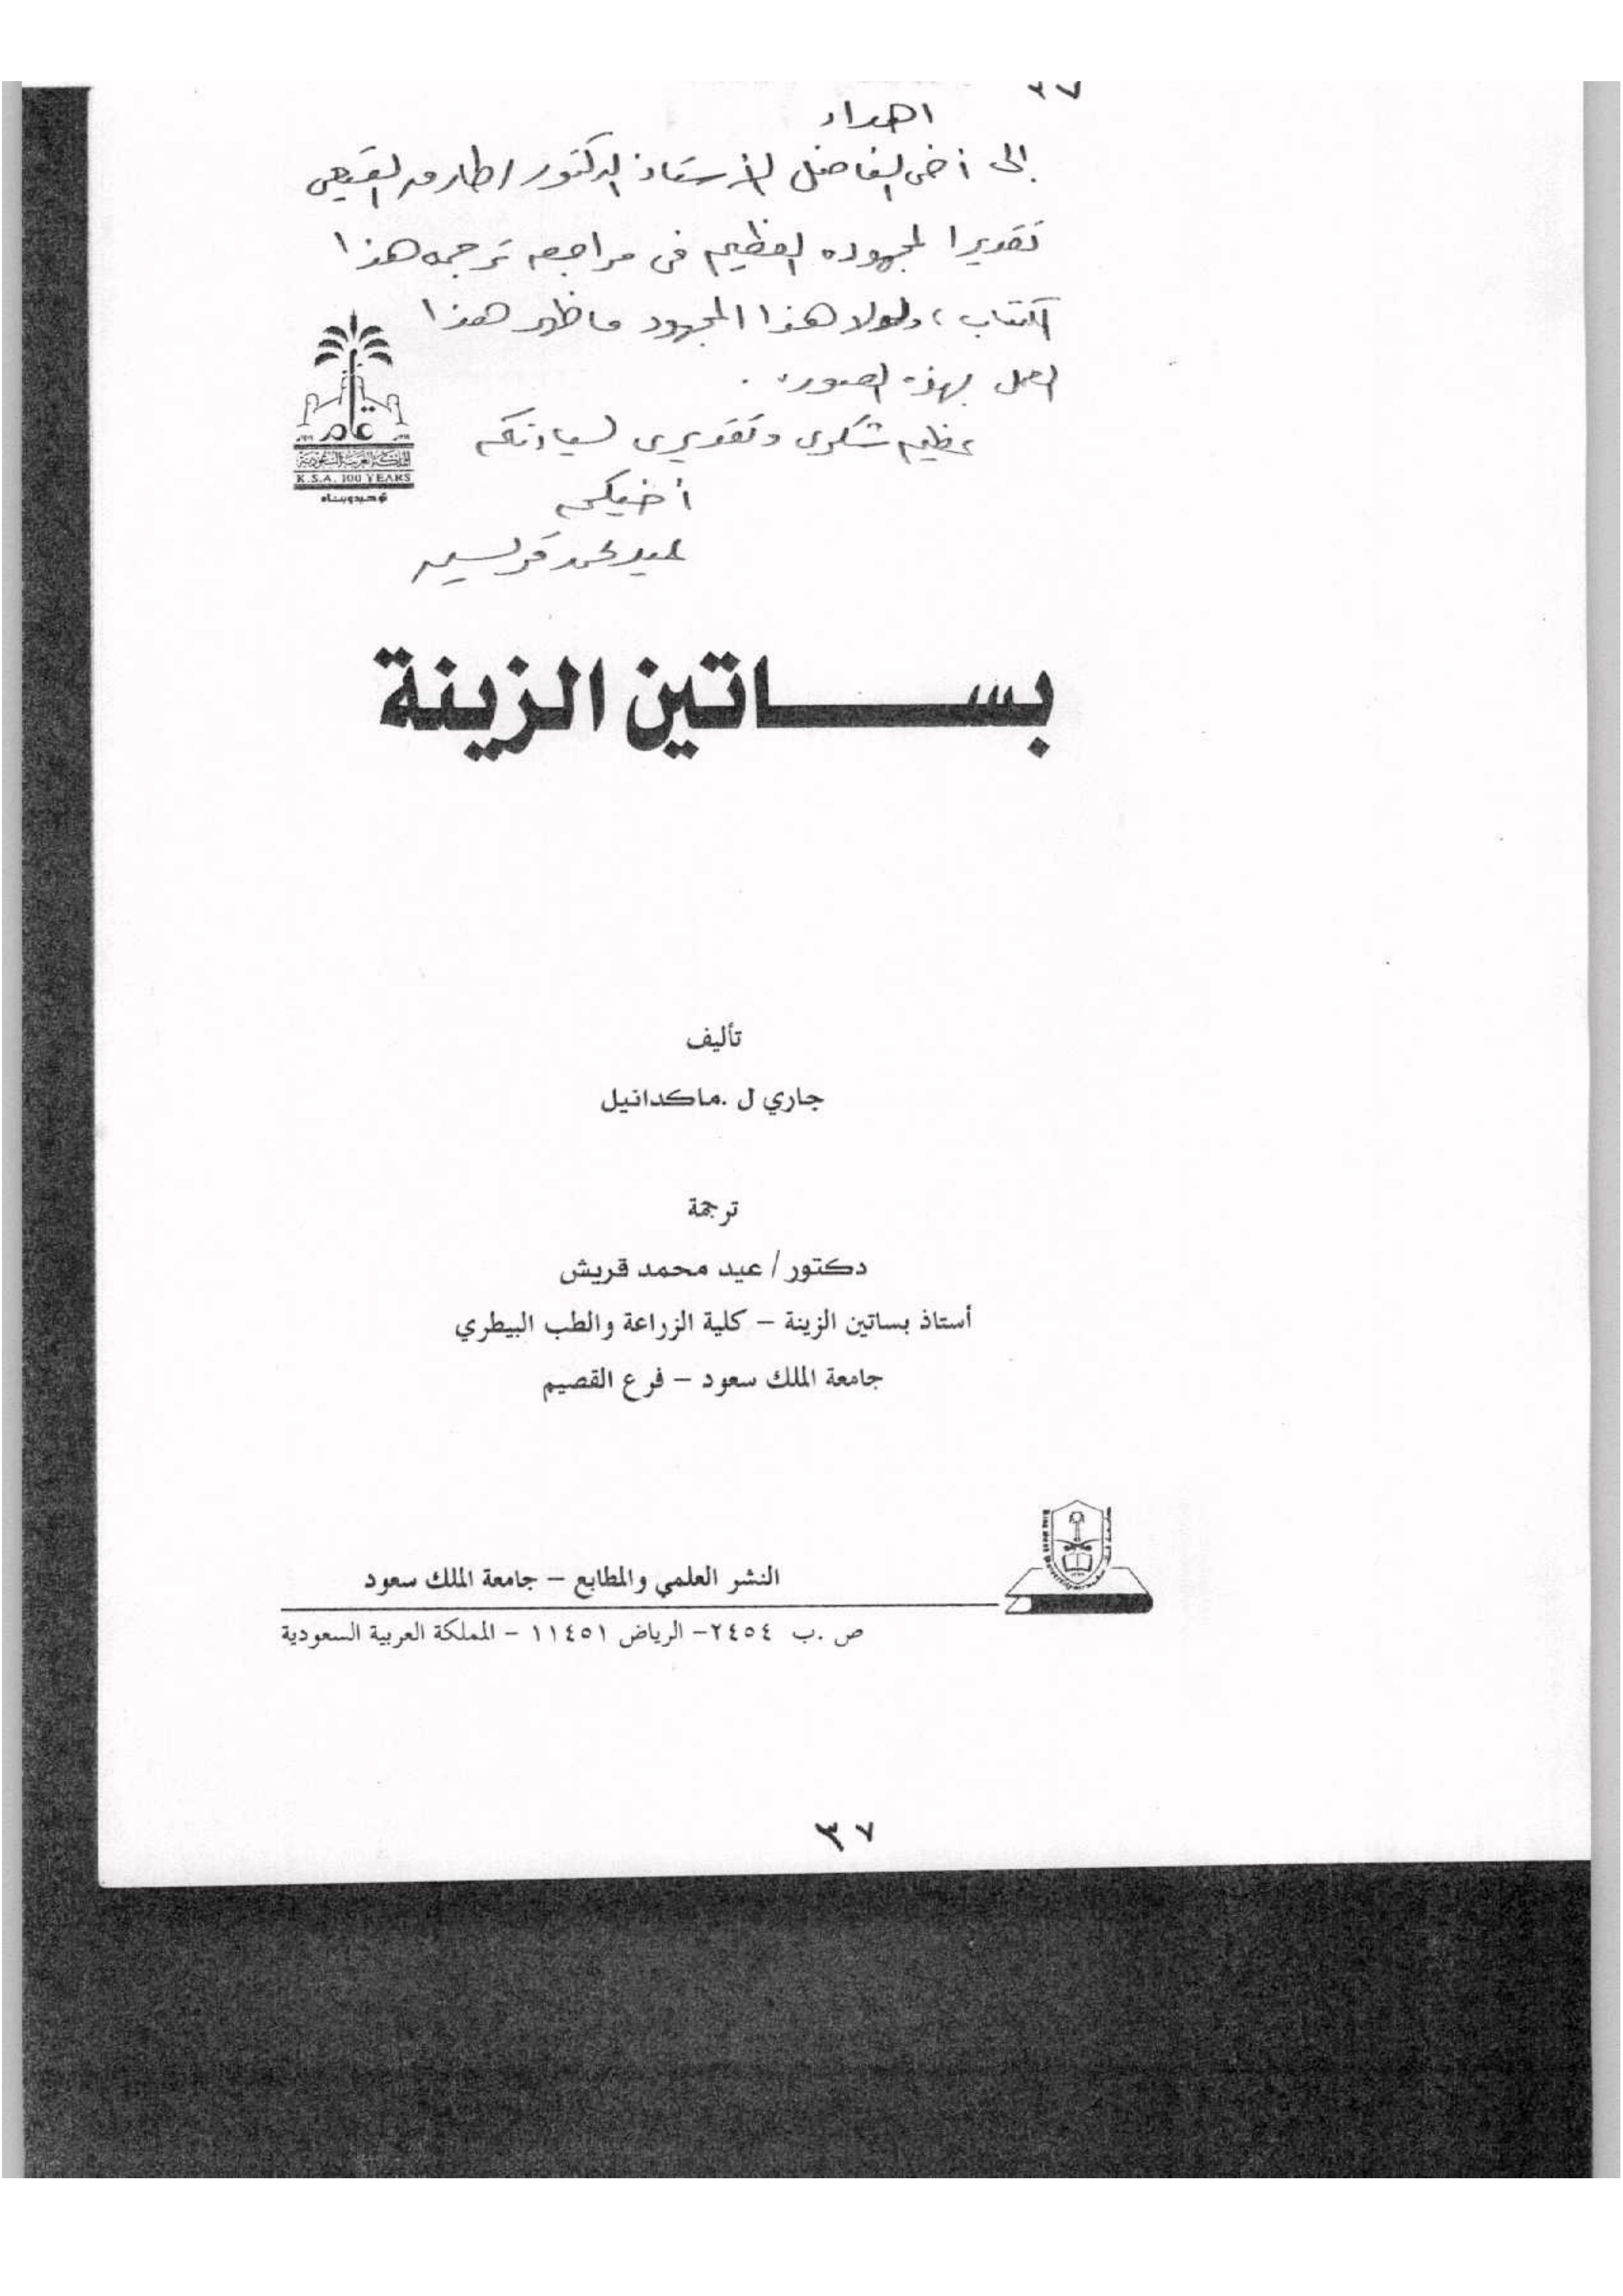 ٣٧
اهداء
إلى أخى الفاضل الأستاذ الدكتور / طارق القيعى
تقديرا لمجهوده العظيم فى مراجعه ترجمه هذا
الكتاب، ولولا هذا المجهود ما ظهر هذا
العمل بهذه الصوره.
عظيم شكرى وتقديرى لسيادتكم
أخيكم
عيد محمد قريش
عام
المملكة العربية السعودية
K.S.A. 100 YEARS
توحيد وبناء
بساتين الزينة
تأليف
جاري ل .ماكدانيل
ترجمة
دكتور / عيد محمد قريش
أستاذ بساتين الزينة – كلية الزراعة والطب البيطري
جامعة الملك سعود – فرع القصيم
النشر العلمي والمطابع – جامعة الملك سعود
ص .ب ٢٤٥٤– الرياض ١١٤٥١ – المملكة العربية السعودية
٣٧